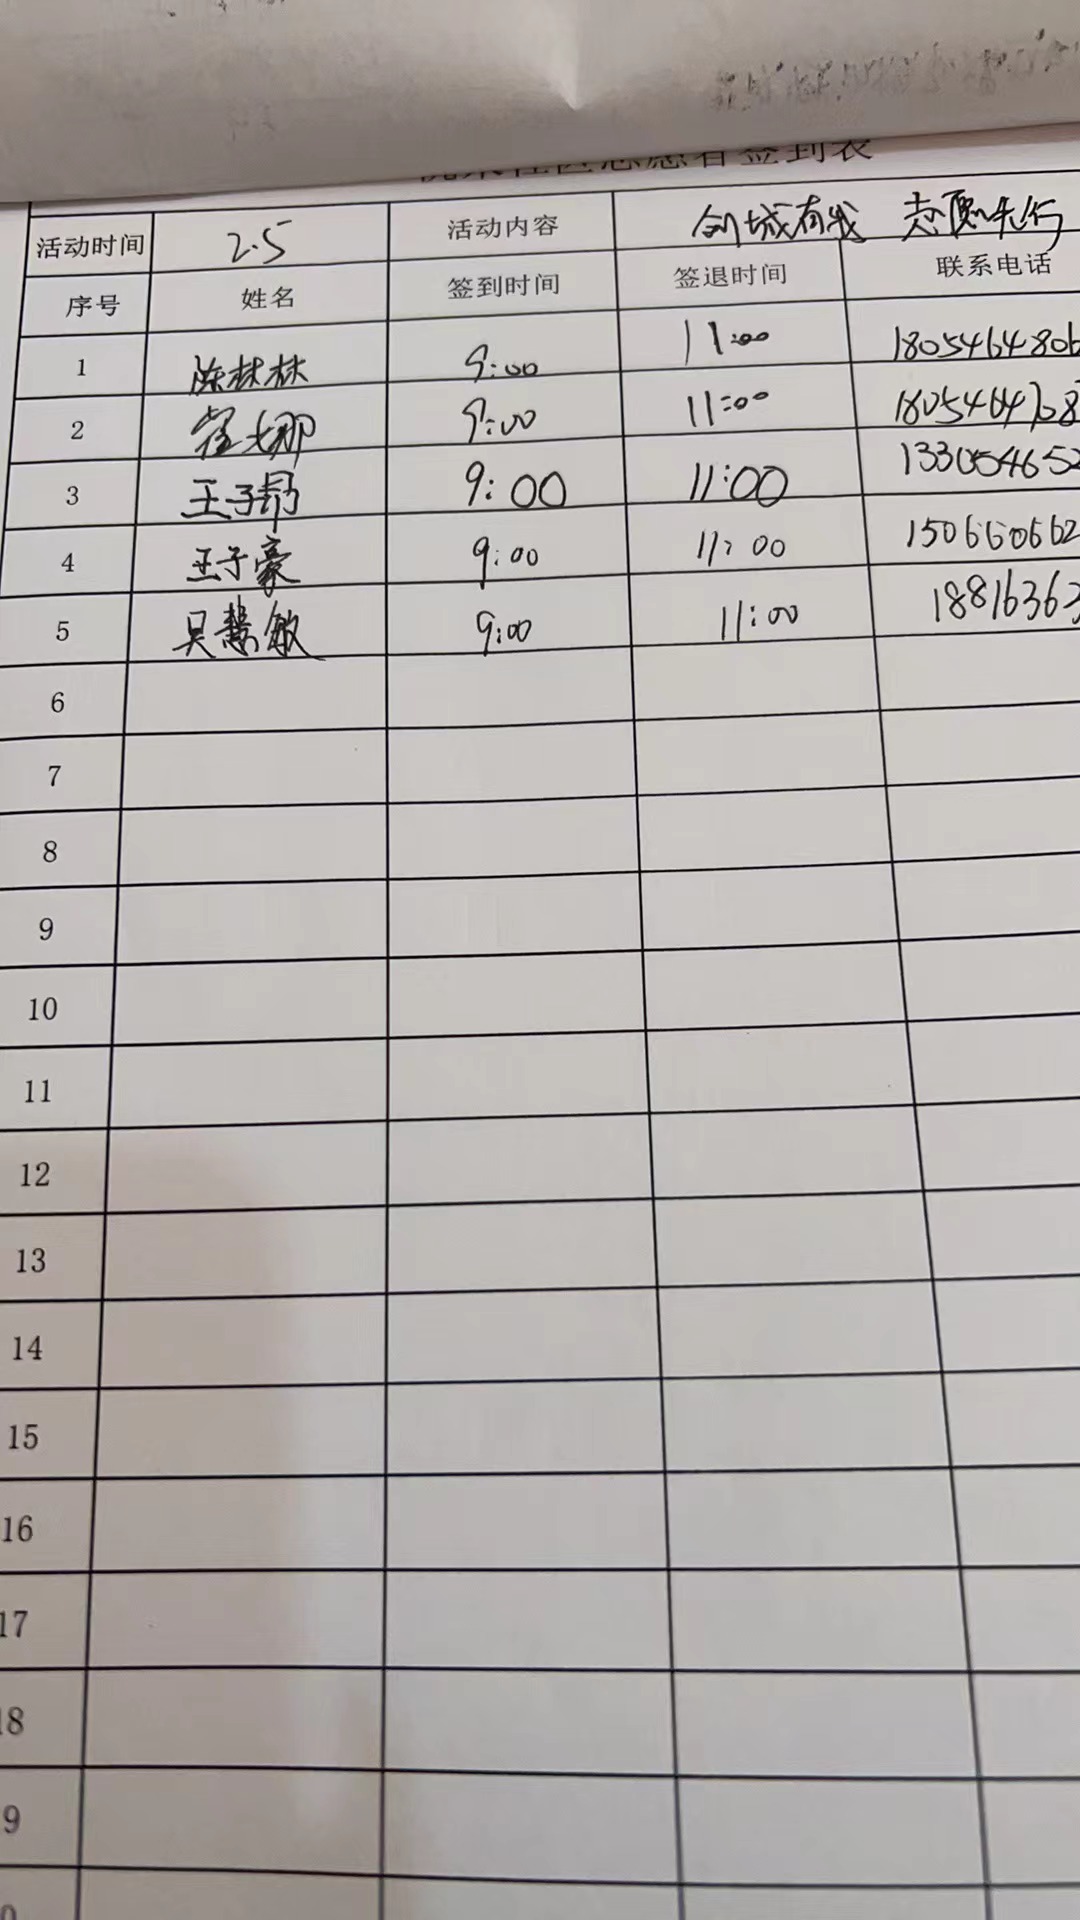 社区志愿者签到表
活动时间 2.5 活动内容 创城有我 志愿先行
序号 姓名 签到时间 签退时间 联系电话
1 陈林林 9:00 11:00 1805464806
2 崔娜 9:00 11:00 18054647087
3 王子昂 9:00 11:00 133054652
4 王子豪 9:00 11:00 150660662
5 吴慧敏 9:00 11:00 18816363
6
7
8
9
10
11
12
13
14
15
16
17
18
9
0